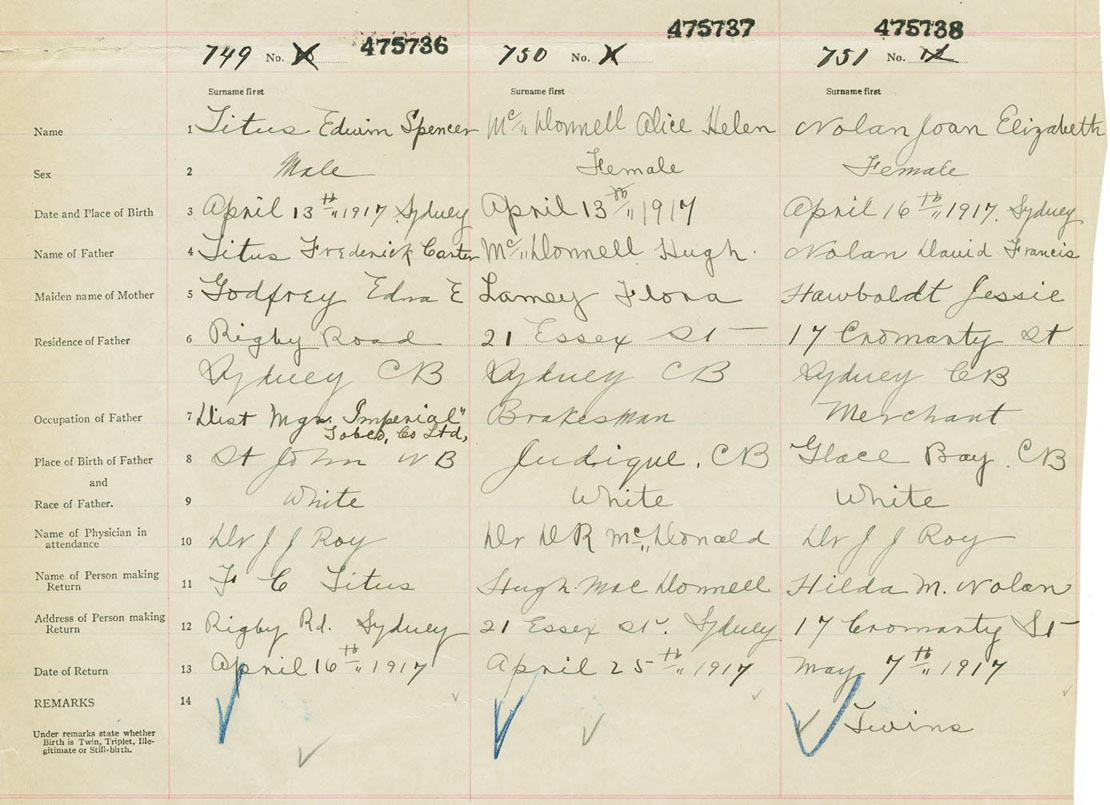 475736 475737 475738
749 No. 750 No. 751 No. 12
Surname first Surname first Surname first
Name 1 Titus Edwin Spencer Mc"Donnell Alice Helen Nolan Joan Elizabeth
Sex 2 Male Female Female
Date and Place of Birth 3 April 13th" 1917 Sydney April 13th" 1917 April 16th" 1917. Sydney
Name of Father 4 Titus Frederick Carter Mc"Donnell Hugh. Nolan David Francis
Maiden name of Mother 5 Godfrey Edna E Lamey Flora Hawboldt Jessie
Residence of Father 6 Rigby Road 21 Essex St 17 Cromanty St
Sydney CB Sydney CB Sydney CB
Occupation of Father 7 Dist Mgr. Imperial" Brakesman Merchant
Tobco, Co Ltd,
Place of Birth of Father 8 St John NB Judique, CB Glace Bay, CB
and
Race of Father. 9 White White White
Name of Physician in
attendance 10 Dr J J Roy Dr D R Mc"Donald Dr J J Roy
Name of Person making
Return 11 F C Titus Hugh Mac Donnell Hilda M. Nolan
Address of Person making
Return 12 Rigby Rd. Sydney 21 Essex St. Sydney 17 Cromanty St
Date of Return 13 April 16th" 1917 April 25th" 1917 May 7th" 1917
REMARKS 14
Twins
Under remarks state whether
Birth is Twin, Triplet, Ille-
gitimate or Still-birth.